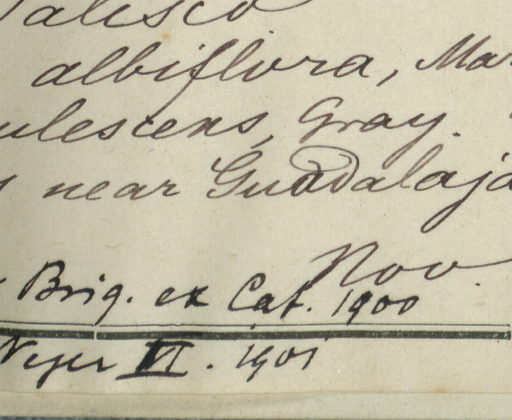 Jalisco
albiflora, Mar
ulescens, Gray.
s near Guadalaja
Nov.
Briq. ex Cat. 1900
VI. 1901